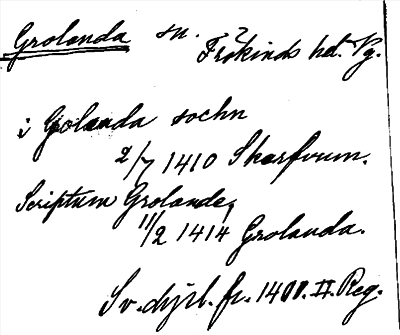 Grolanda sn. Frökinds hd. Vg.
i Golanda sochn
2/7 1410 Skarfvum.
Scriptum Grolande,
11/2 1414 Grolanda.
Sv. dipl. fr. 1401. II. Reg.